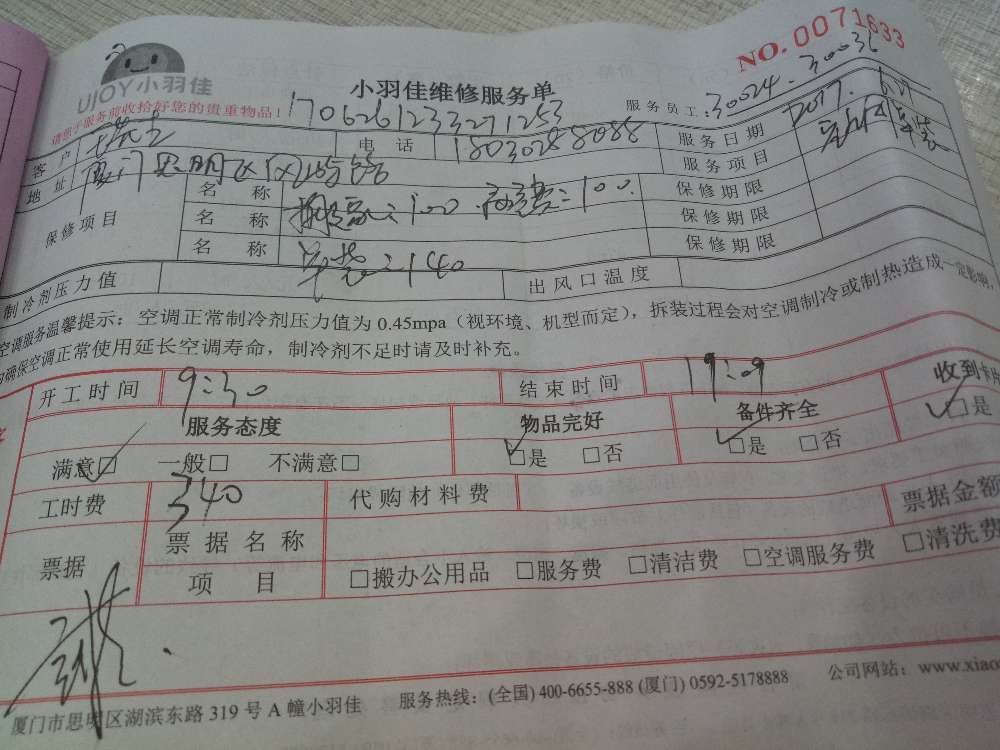 UJOY小羽佳
小羽佳维修服务单
NO.0071633
请您于服务前收拾好您的贵重物品！
1706261233271253
服务员工：30024.30036
客户 电话 18030288088 服务日期 2017.6.27
地址 厦门思明区 服务项目
保修项目 名称 =100 =100. 保修期限
名称 保修期限
名称 =140 保修期限
制冷剂压力值 出风口温度
空调服务温馨提示：空调正常制冷剂压力值为0.45mpa（视环境、机型而定），拆装过程会对空调制冷或制热造成一定影响，
确保空调正常使用延长空调寿命，制冷剂不足时请及时补充。
开工时间 9:30 结束时间 19:09
服务态度 物品完好 备件齐全 收到
满意□ 一般□ 不满意□ □是 □否 □是 □否 □是
工时费 340 代购材料费 票据金额
票据 票据名称
项目 □搬办公用品 □服务费 □清洁费 □空调服务费 □清洗费
厦门市思明区湖滨东路319号A幢小羽佳 服务热线：(全国) 400-6655-888 (厦门) 0592-5178888 公司网站：www.xiao